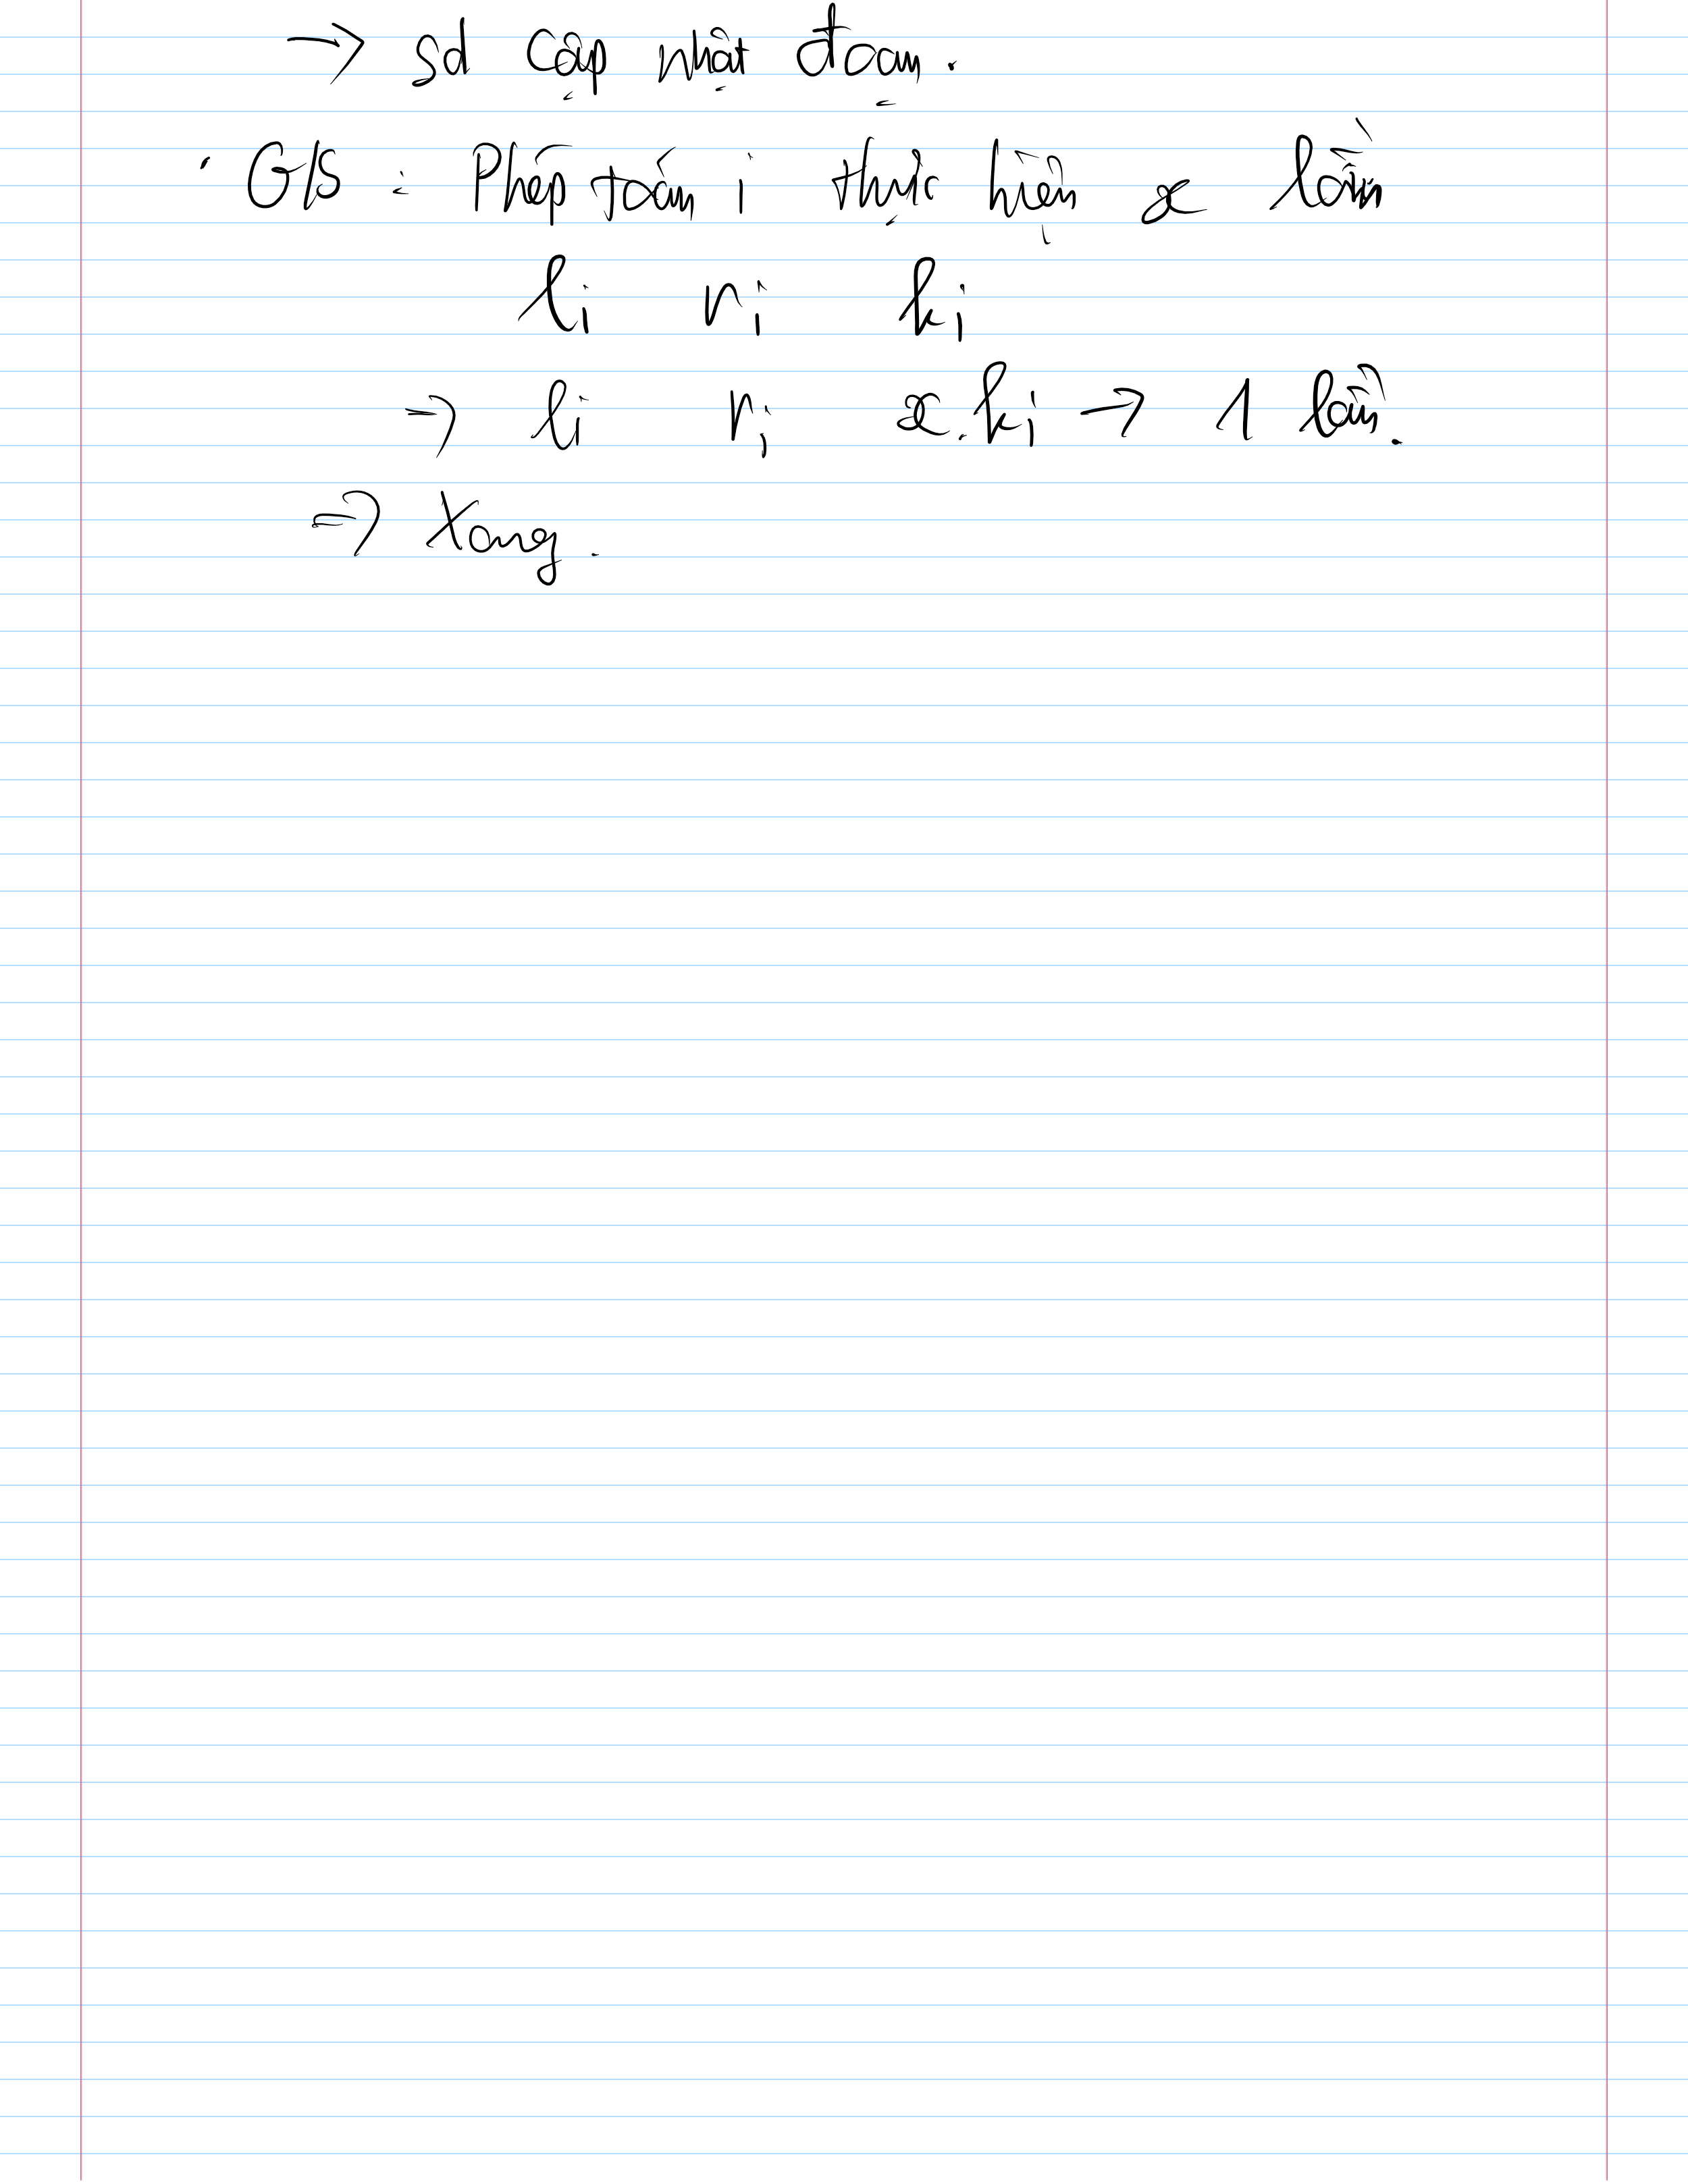 → sd cập nhật đoạn.
• G/s : Phép toán i thực hiện x lần
li ri ki
→ li ri x.ki → 1 lần.
=> Xong.